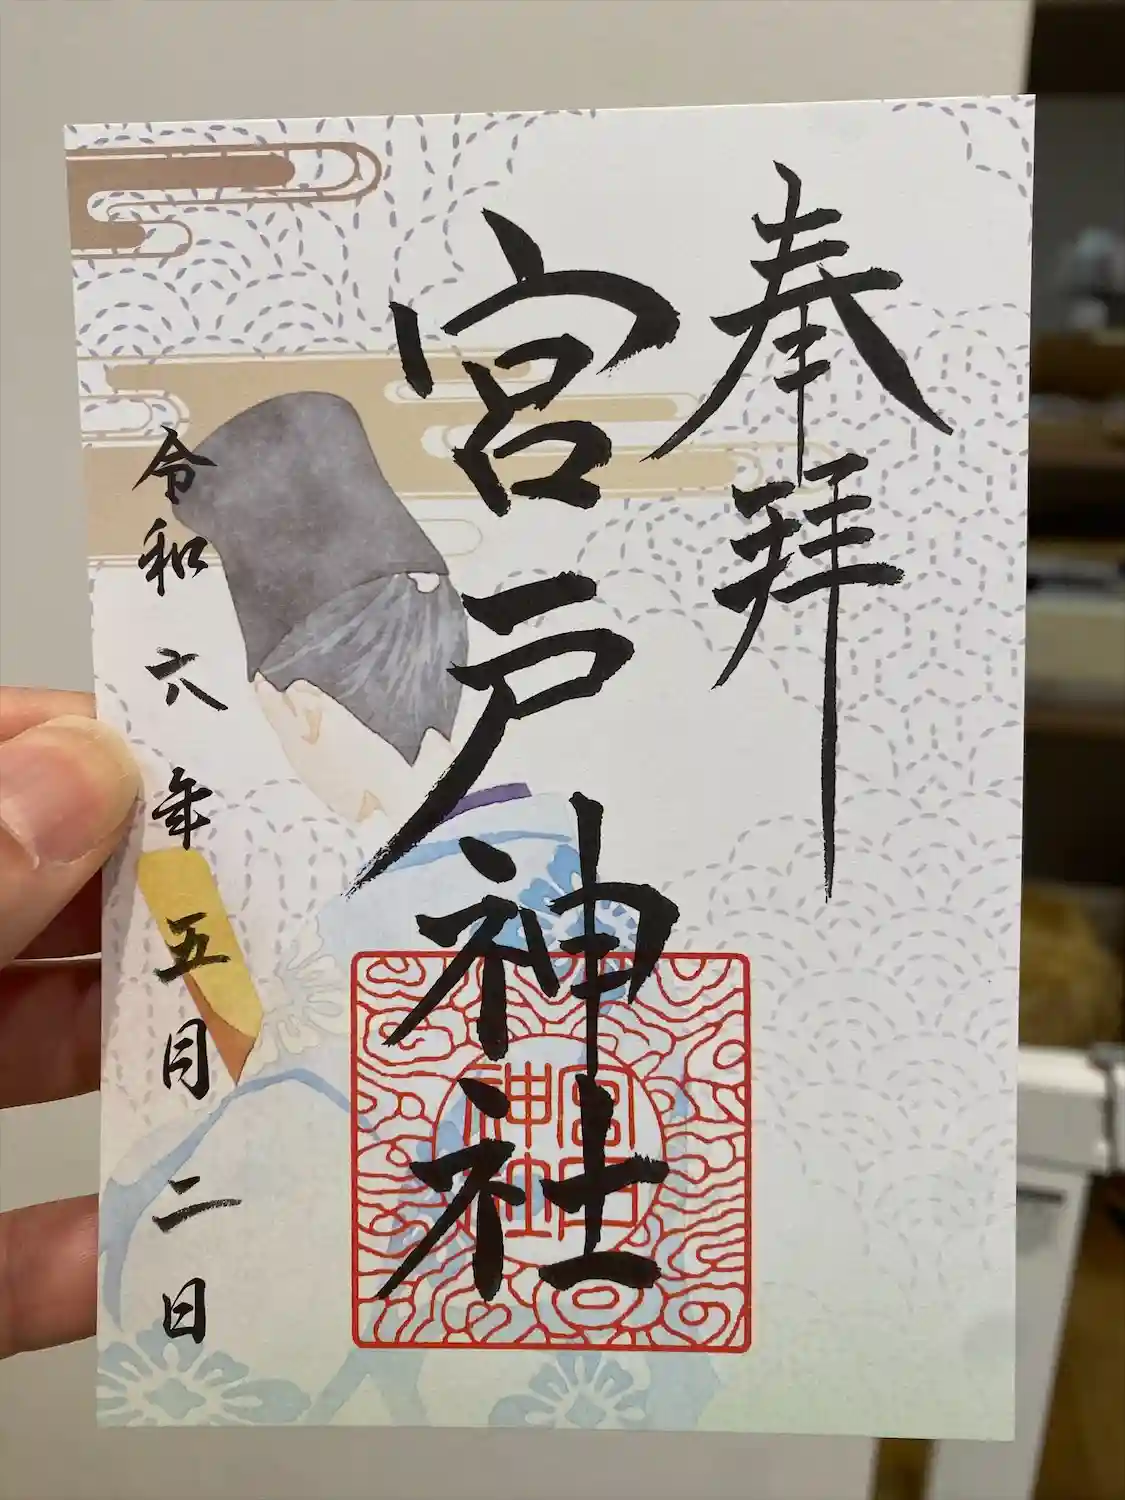 奉拝
宮戸神社
宮戸
神社
令和六年五月二日